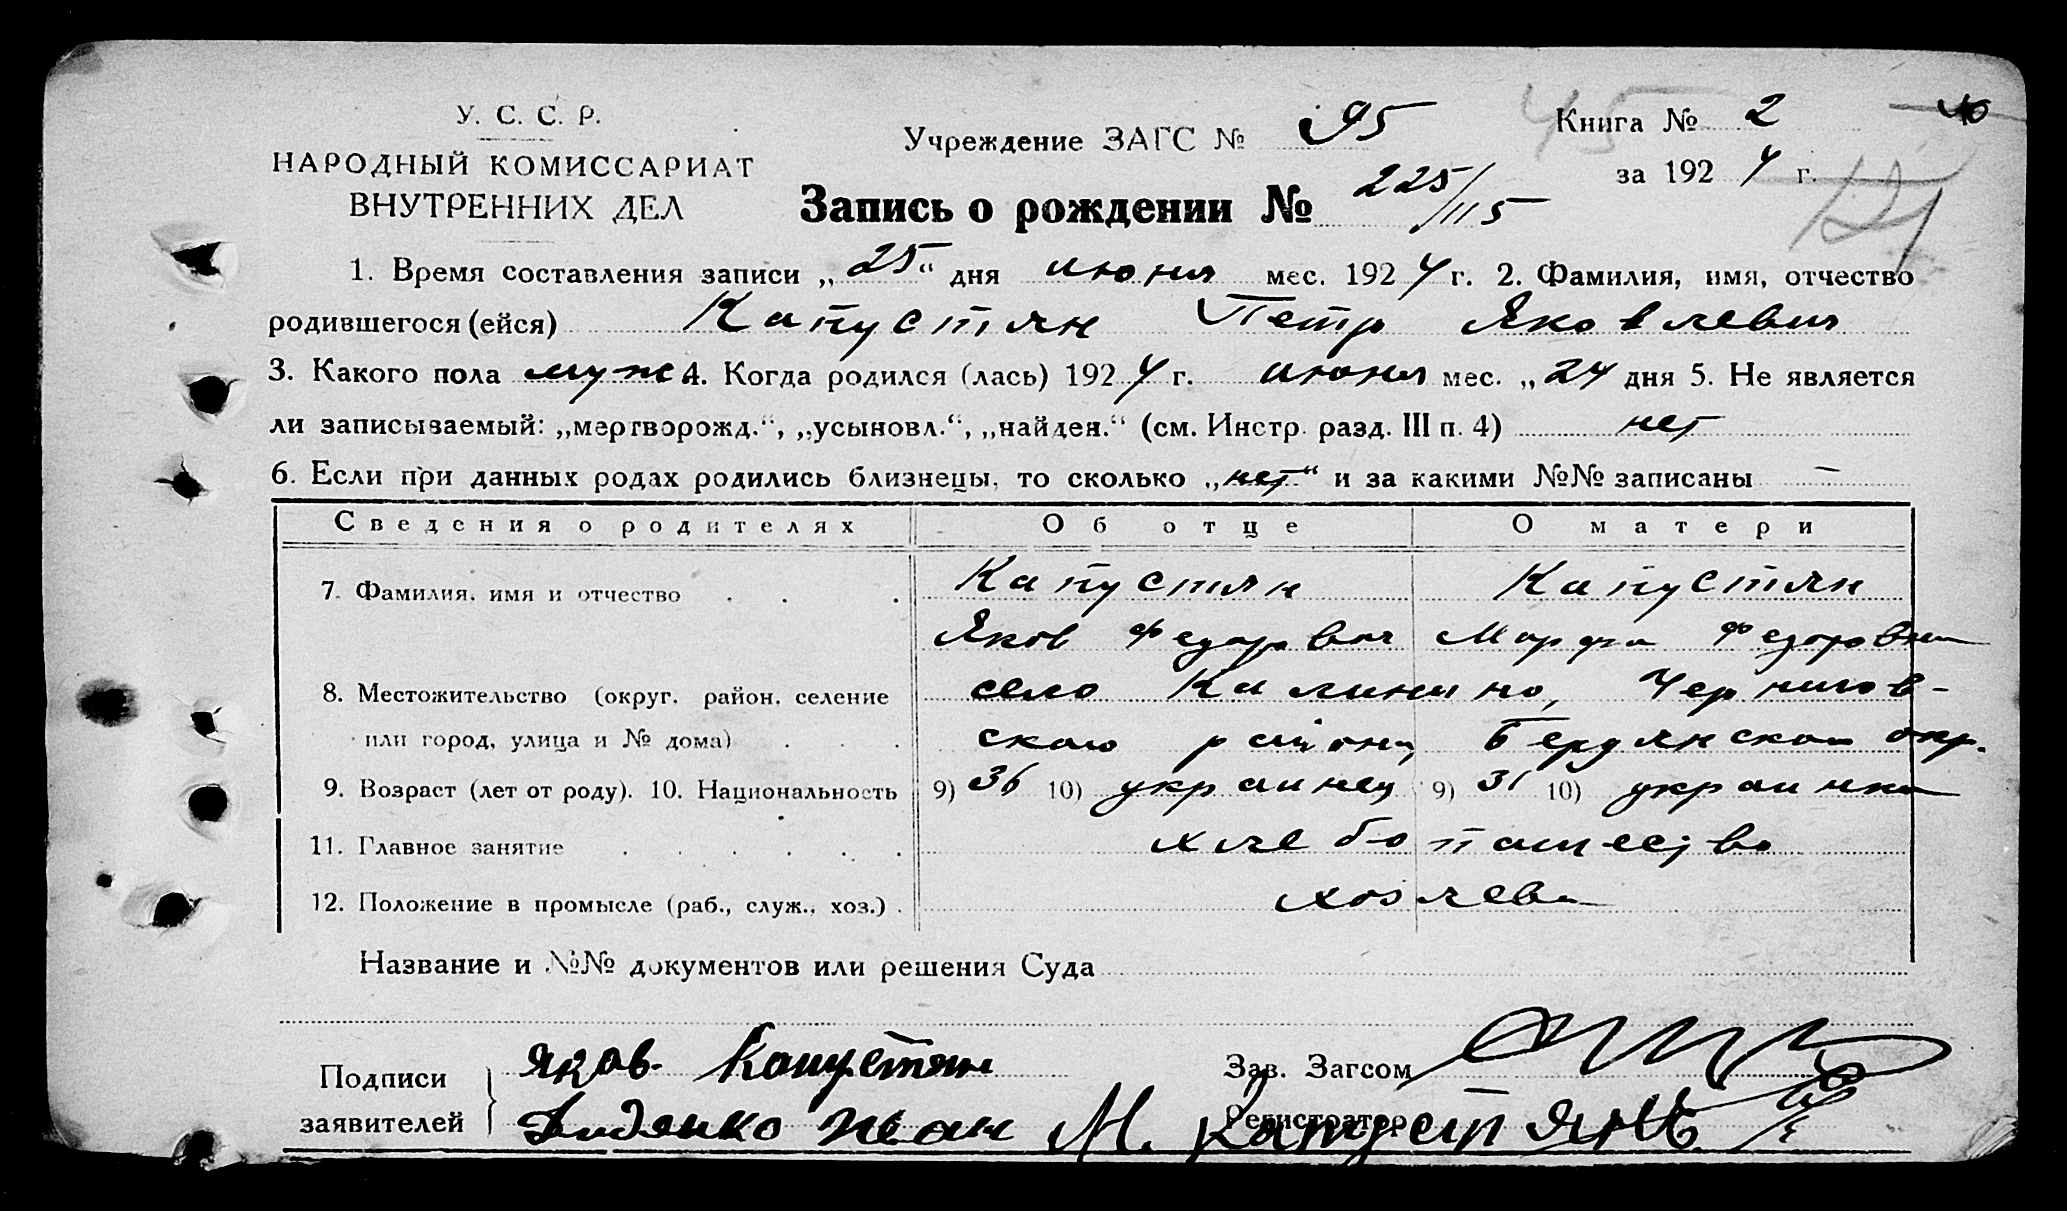 У. С. С. Р.
НАРОДНЫЙ КОМИССАРИАТ
ВНУТРЕННИХ ДЕЛ
Учреждение ЗАГС № 95
45
Книга № 2
за 1924 г.
Запись о рождении № 225/115
1. Время составления записи „25“ дня июня мес. 1924 г. 2. Фамилия, имя, отчество
родившегося (ейся) Капустян Петр Яковлевич
3. Какого пола муж 4. Когда родился (лась) 1924 г. июня мес. „24 дня 5. Не является
ли записываемый: „мертворожд.“, „усыновл.“, „найден.“ (см. Инстр. разд. III п. 4) нет
6. Если при данных родах родились близнецы, то сколько „нет“ и за какими №№ записаны —
Сведения о родителях Об отце О матери
7. Фамилия, имя и отчество Капустян Капустян
Яков Федорович Марфа Федоровна
8. Местожительство (округ, район, селение село Калинино, Чернигов-
или город, улица и № дома) ского района, Бердянской окр.
9. Возраст (лет от роду). 10. Национальность 9) 36 10) украинец 9) 31 10) украинка
11. Главное занятие хлебопашество
12. Положение в промысле (раб., служ., хоз.) хозяева
Название и №№ документов или решения Суда
Подписи заявителей } Яков Капустян
М. Капустян
Зав. Загсом
Регистратор